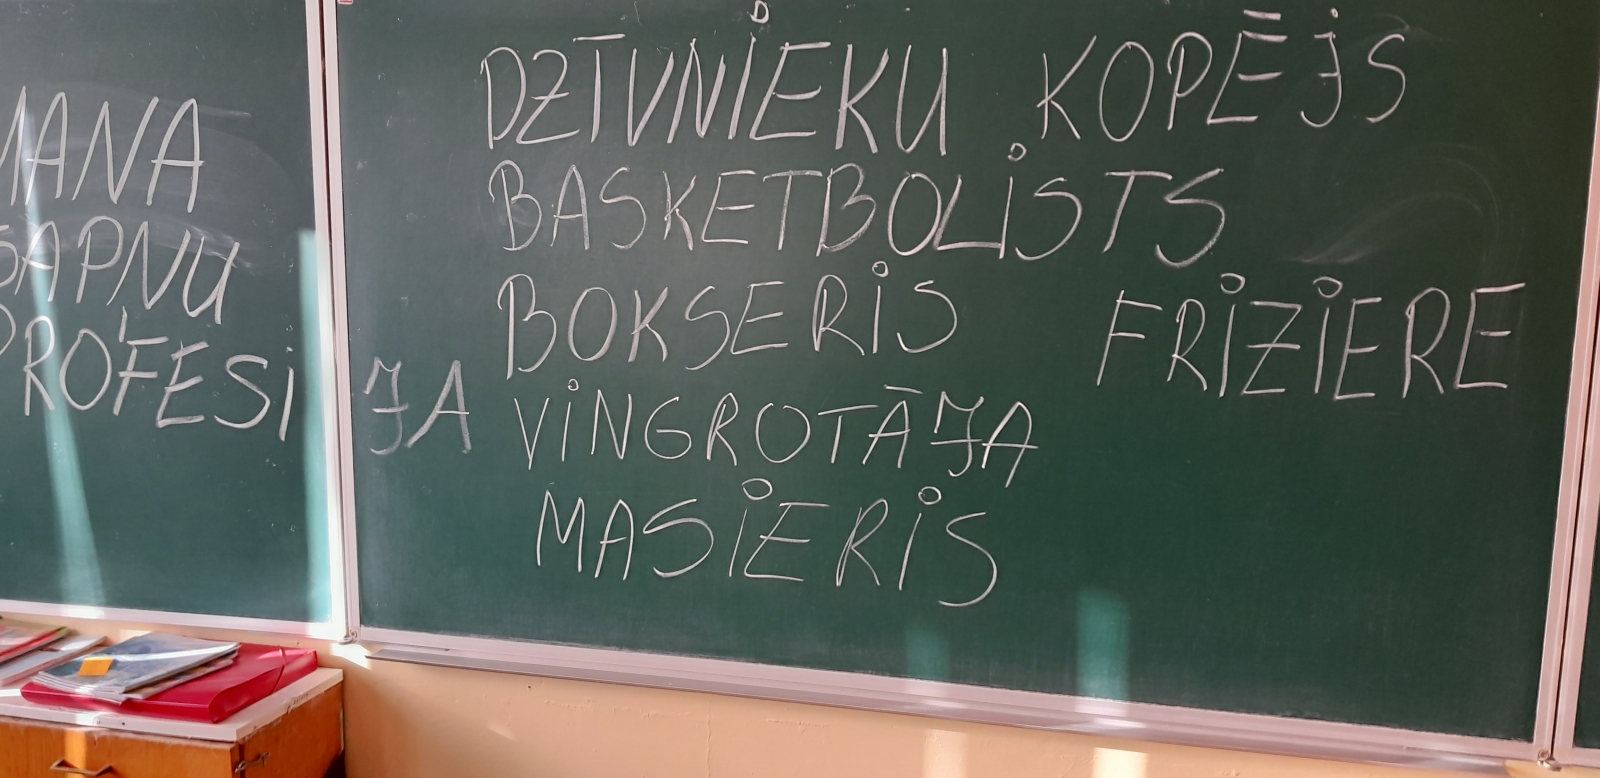 MANA
SAPŅU
PROFESIJA
DZĪVNIEKU KOPĒJS
BASKETBOLISTS
BOKSERIS
FRIZIERE
VINGROTĀJA
MASIERIS